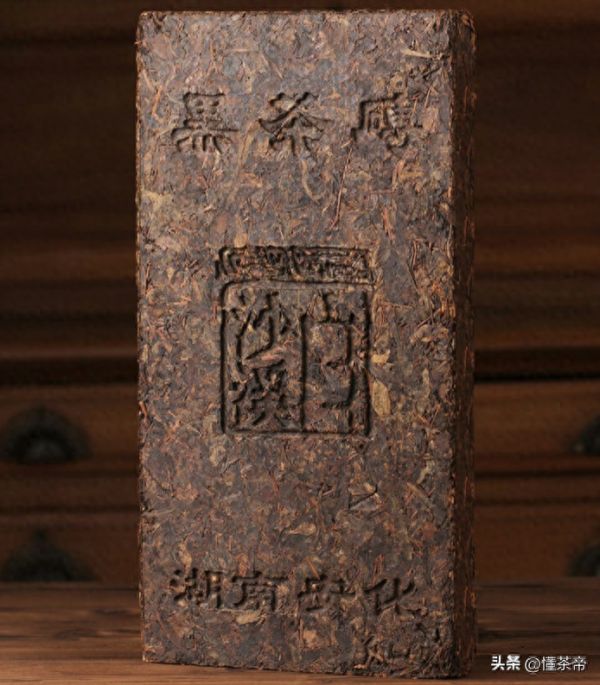 黑茶磚
白沙溪
湖南安化
头条 @懂茶帝